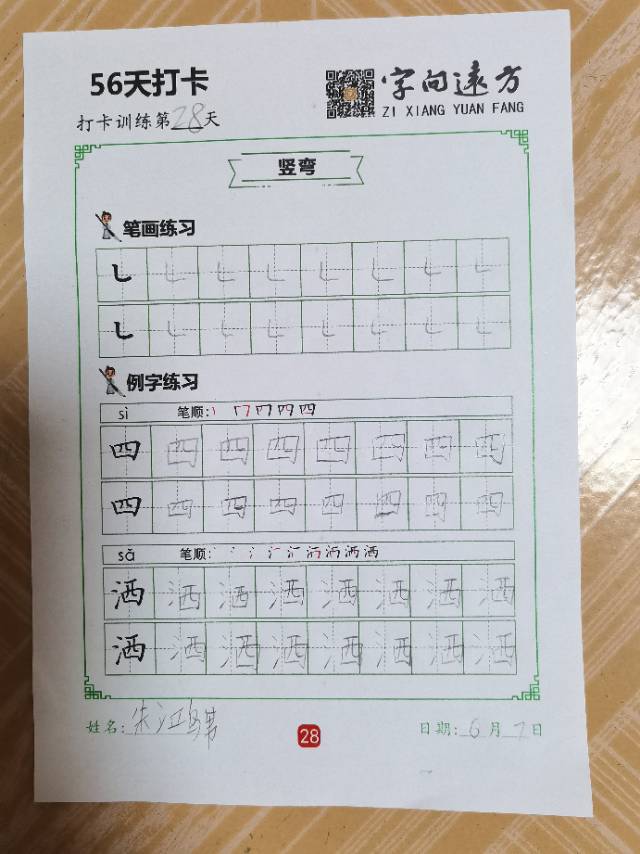 56天打卡
字向遠方
ZI XIANG YUAN FANG
打卡训练第28天
竖弯
笔画练习
例字练习
sì 笔顺:
四 四 四 四 四 四 四 四
四 四 四 四 四 四 四 四
sǎ 笔顺:
洒 洒 洒 洒 洒 洒 洒 洒
洒 洒 洒 洒 洒 洒 洒 洒
姓名:朱江
28
日期:6月7日